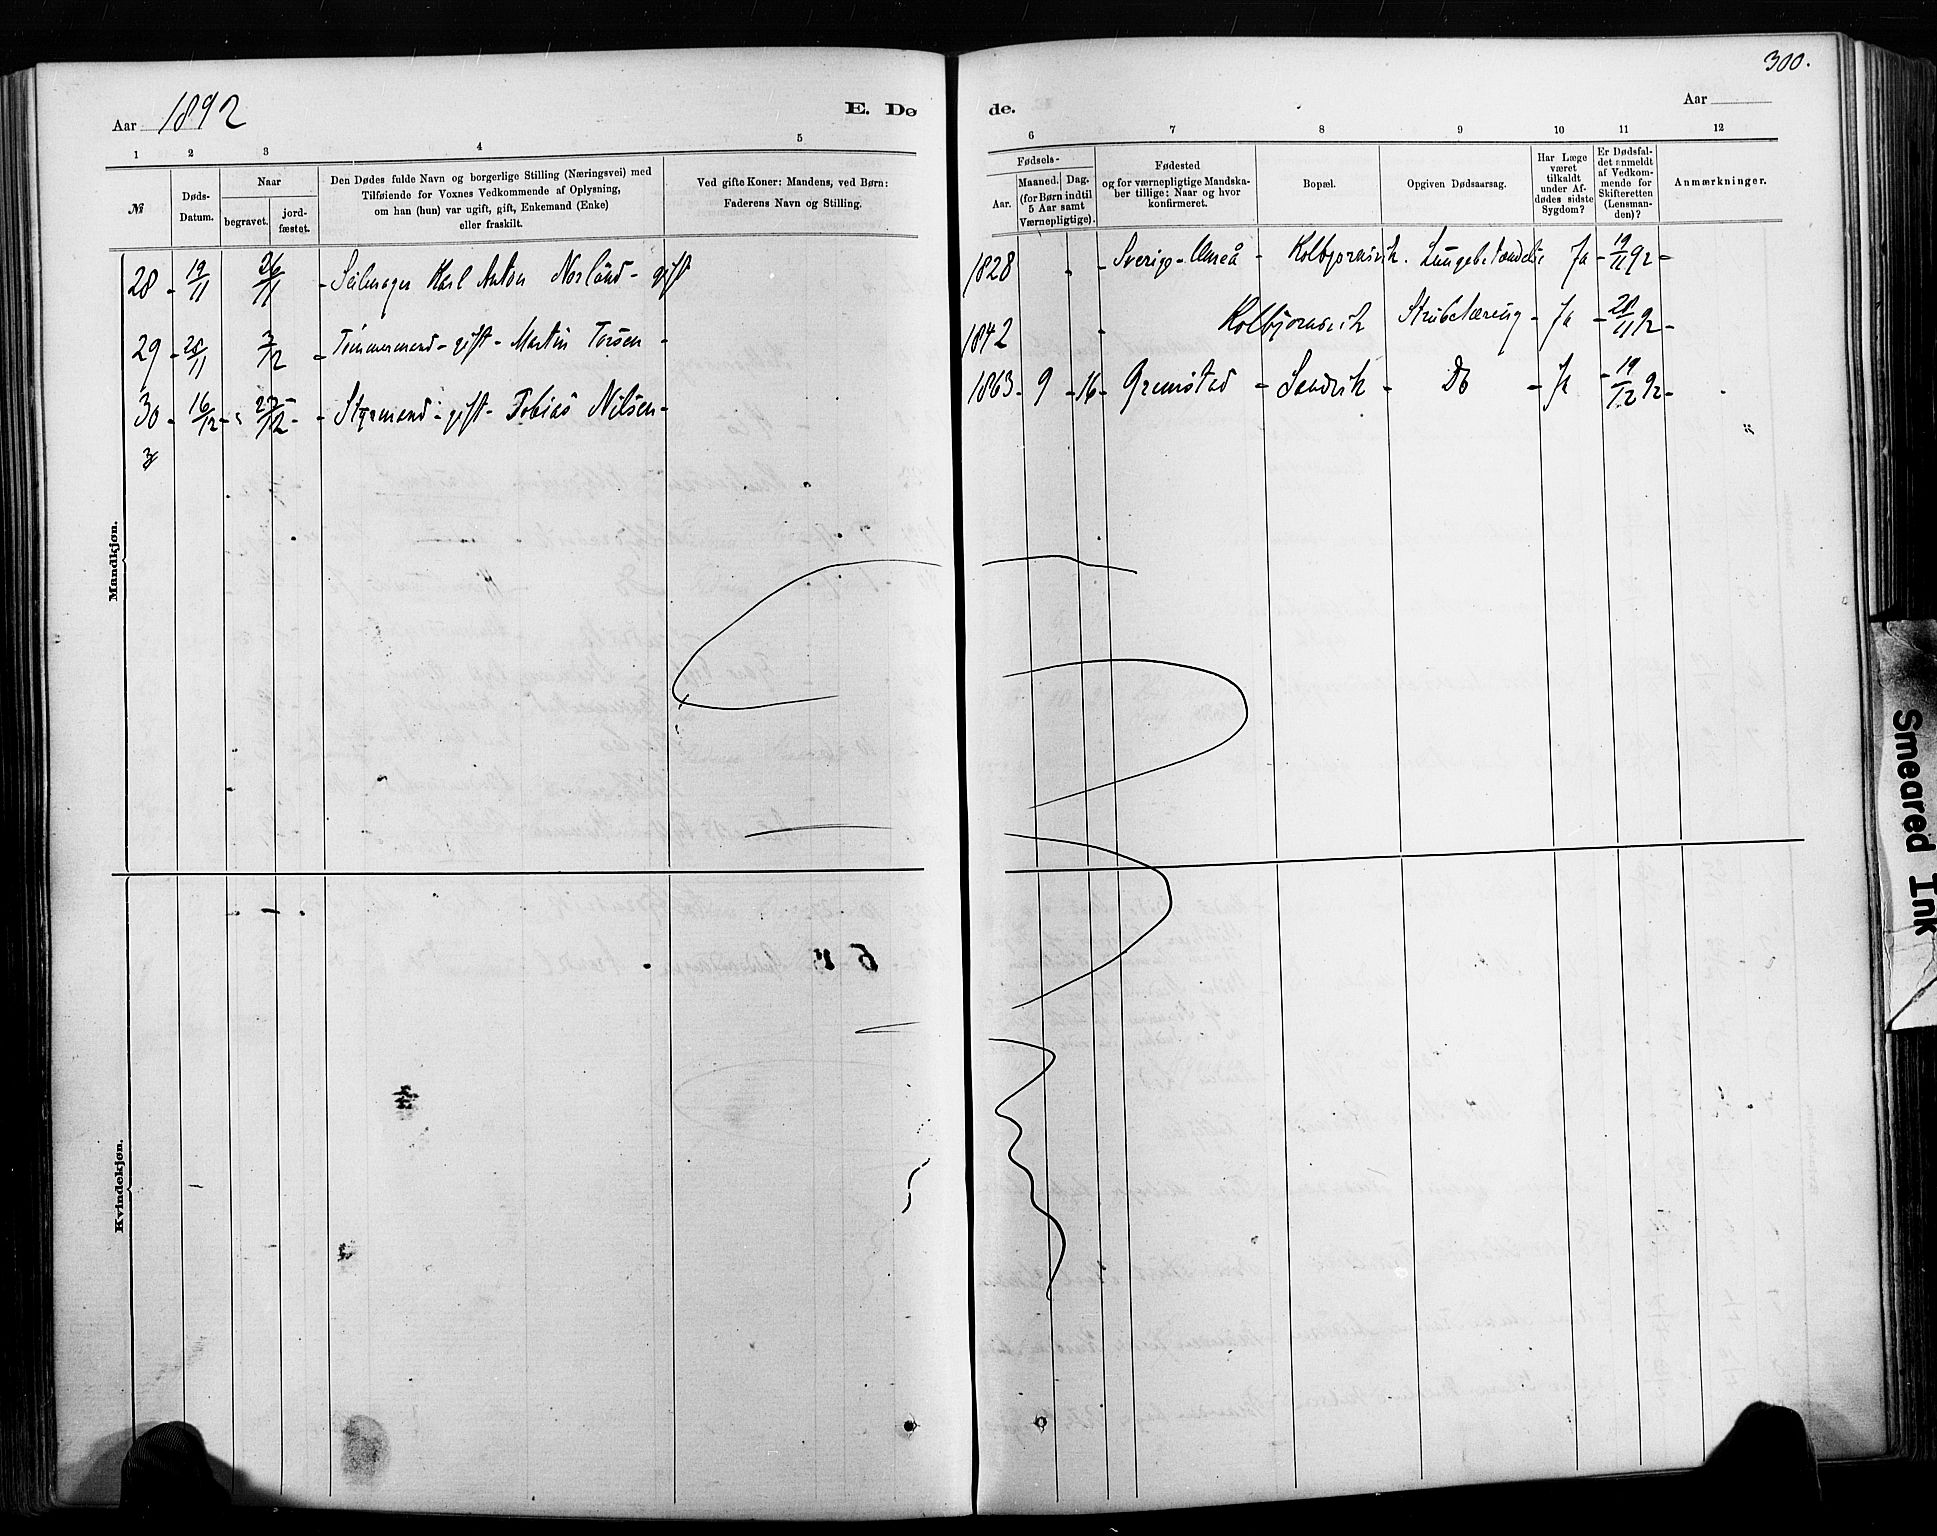 300.
Aar 1892 E. Dø de. Aar
1 2 3 4 5 6 7 8 9 10 11 12
№
Døds-Datum.
Naar
begravet.
jord-fæstet.
Den Dødes fulde Navn og borgerlige Stilling (Næringsvei) med
Tilføiende for Voxnes Vedkommende af Oplysning,
om han (hun) var ugift, gift, Enkemand (Enke)
eller fraskilt.
Ved gifte Koner: Mandens, ved Børn:
Faderens Navn og Stilling.
Fødsels-
Aar.
Maaned. Dag.
(for Børn indtil
5 Aar samt
Værnepligtige).
Fødested
og for værnepligtige Mandska-
ber tillige: Naar og hvor
konfirmeret.
Bopæl.
Opgiven Dødsaarsag.
Har Læge
været
tilkaldt
under Af-
dødes sidste
Sygdom?
Er Dødsfal-
det anmeldt
af Vedkom-
mende for
Skifteretten
(Lensman-
den)?
Anmærkninger.
28 - 19/11 26/11 - Seilmager Karl Anton Norlund - gift 1828 - Sverige - Umeå - Kolbjornsvik. Lungebetændelse Ja - 19/11 92 -
29 - 28/11 3/12 - Tømmermand - gift - Martin Torsen - 1842 - Kolbjornsvik Strubetæring - Ja - 28/11 92 -
30 - 16/12 - 22/12 - Styrmand - gift - Tobias Nilsen - 1863 - 9 - 16 - Grimstad - Sandvik - Do - Ja - 19/12 92 -
3
Mandkjøn.
Kvindekjøn.
Smeared Ink